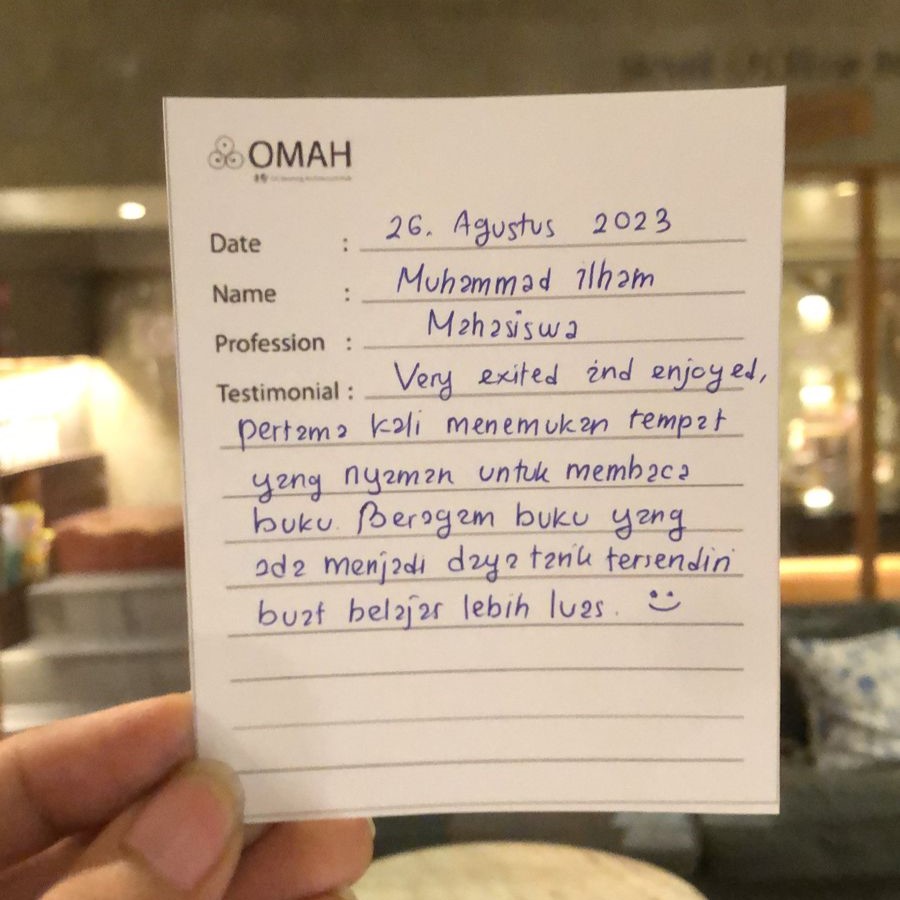 OMAH
Date : 26. Agustus 2023
Name : Muhammad ilham
Profession : Mahasiswa
Testimonial : Very exited and enjoyed,
pertama kali menemukan tempat
yang nyaman untuk membaca
buku. Beragam buku yang
ada menjadi daya tarik tersendiri
buat belajar lebih luas.